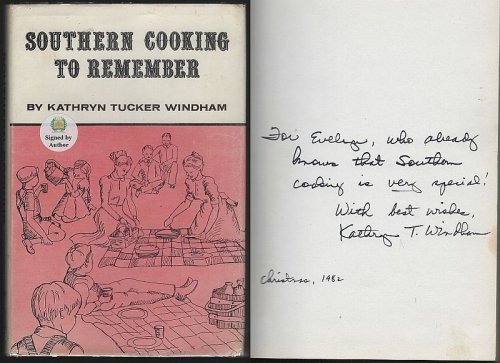 SOUTHERN COOKING
TO REMEMBER
BY KATHRYN TUCKER WINDHAM
Signed by
Author
For Evelyn, who already
knows that Southern
cooking is very special!
With best wishes,
Kathryn T. Windham
Christmas, 1982